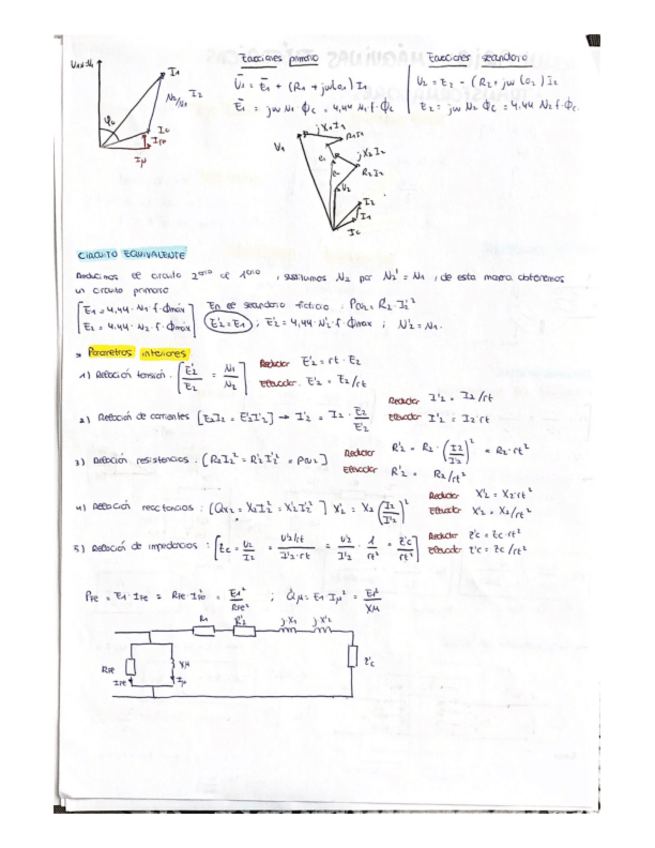 Ecuaciones primario
Ecuaciones secundario
U1≈N1
I1
N2/N1 I2
φ0
I0
IFe
Iμ
Ū1 = Ē1 + (R1 + jωLσ1) I1
Ē1 = jω N1 ϕc = 4,44 N1 · f · ϕc
U2 = E2 - (R2 + jω Lσ2) I2
E2 = jω N2 ϕc = 4,44 N2 f · ϕc
jX1 I1
R1 I1
V1
e1
jX2 I2
R2 I2
U2
I2
I1
I0
CIRCUITO EQUIVALENTE
Reducimos el circuito 2ario al 1ario, sustituimos N2 por N2' = N1, de esta manera obtenemos
un circuito primario
[E1 = 4,44 · N1 · f · ϕmáx
E2 = 4,44 · N2 · f · ϕmáx]
En el secundario ficticio: Pcu2 = R2 · I2²
E2' = E1 ; E2' = 4,44 · N2' · f · ϕmax ; N2' = N1.
Parametros interiores
1) Relación tensión. [E2'/E2 = N1/N2]
Reductor E2' = rt · E2
Elevador. E2' = E2/rt
2) Relación de corrientes [E2I2 = E2'I2'] → I2' = I2 · E2/E2'
Reductor I2' = I2/rt
Elevador I2' = I2 · rt
3) Relación resistencias. [R2I2² = R2'I2'² = Pcu2]
Reductor R2' = R2 · (I2/I2')² = R2 · rt²
Elevador R2' = R2/rt²
4) Relación reactancias: [Qx2 = X2I2² = X2'I2'²] X2' = X2 (I2/I2')²
Reductor X2' = X2 · rt²
Elevador X2' = X2/rt²
5) Relación de impedancias: [Zc = U2/I2 = U2'/rt / I2' · rt = U2'/I2' · 1/rt² = Z'c/rt²]
Reductor Z'c = Zc · rt²
Elevador Z'c = Zc/rt²
PFe = E1 · IFe = RFe · IFe² = E1²/RFe² ; Qμ = E1 Iμ² = E1²/Xμ
R1
R2'
jX1
jX'2
RFe
IFe
Xμ
Iμ
Z'c